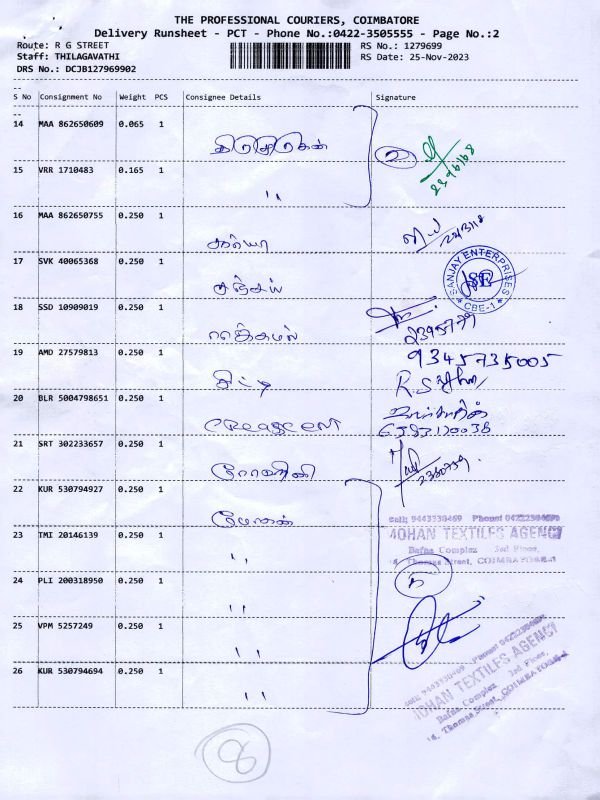 THE PROFESSIONAL COURIERS, COIMBATORE
Delivery Runsheet - PCT - Phone No.:0422-3505555 - Page No.:2
Route: R G STREET
RS No.: 1279699
Staff: THILAGAVATHI
RS Date: 25-Nov-2023
DRS No.: DCJB127969902
S No Consignment No Weight PCS Consignee Details Signature
14 MAA 862650609 0.065 1
15 VRR 1710483 0.165 1
"
16 MAA 862650755 0.250 1
17 SVK 40065368 0.250 1
சஞ்சய்
SANJAY ENTERPRISES
CBE-1
18 SSD 10909019 0.250 1
2395779
19 AMD 27579813 0.250 1
9345735005
சிட்டி
20 BLR 5004798651 0.250 1
6383170038
CRESCENT
21 SRT 302233657 0.250 1
22 KUR 530794927 0.250 1
மோகன்
Cell: 9443330469 Phone:
MOHAN TEXTILES AGENCY
Bafna Complex 3rd Floor,
Thomas Street, COIMBATORE
23 TMI 20146139 0.250 1
"
24 PLI 200318950 0.250 1
5
"
25 VPM 5257249 0.250 1
"
Cell: 9443330469 Phone:
MOHAN TEXTILES AGENCY
Bafna Complex 3rd Floor,
Thomas Street, COIMBATORE
26 KUR 530794694 0.250 1
"
8